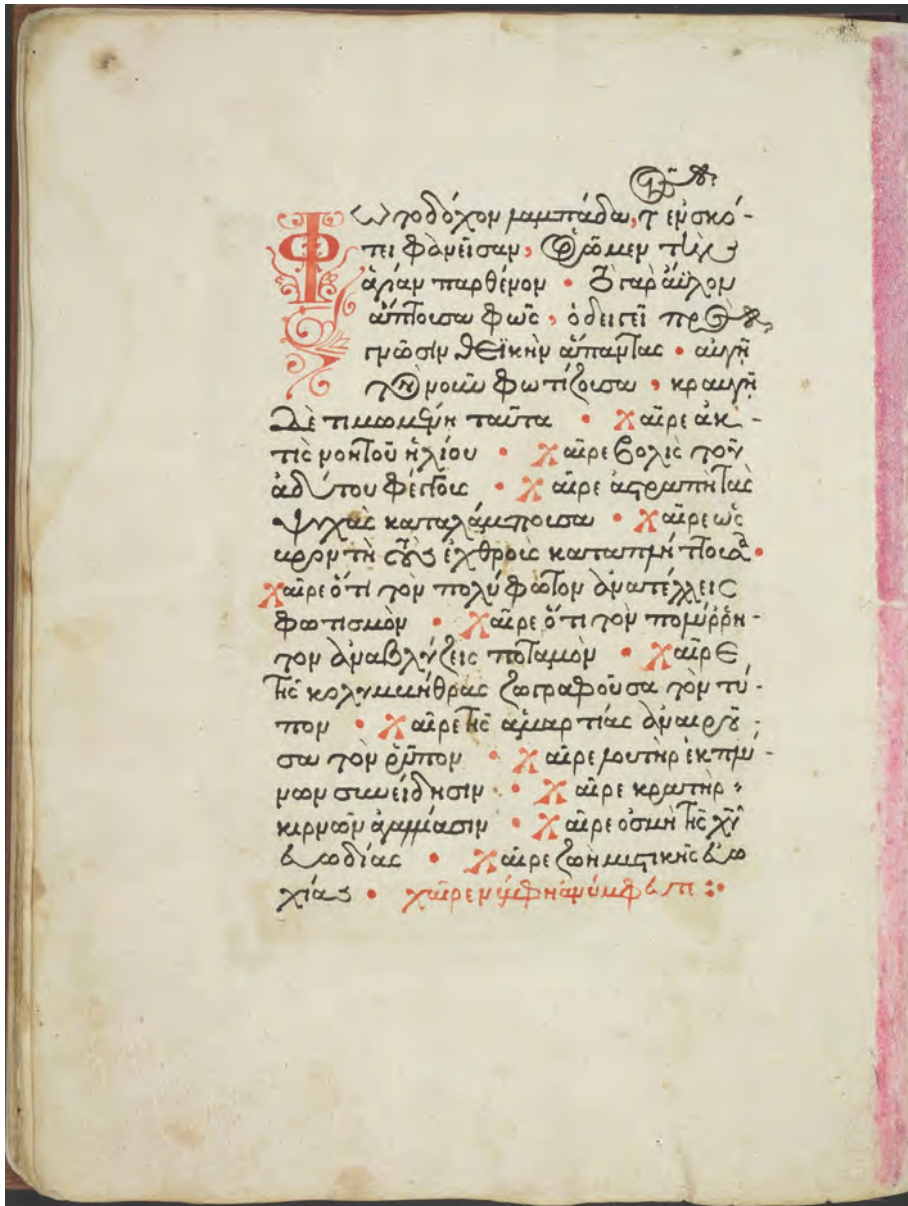 Φωτοδόχον λαμπάδα, τοῖς ἐν σκό-
τει φανεῖσαν, ὁρῶμεν τὴν
ἁγίαν παρθένον · τὸ γὰρ ἄϋλον
ἅπτουσα φῶς, ὁδειγεῖ πρὸς
γνῶσιν θεϊκὴν ἅπαντας · αυγῇ
τὸν νοῦν φωτίζουσα, κραυγῇ
δὲ τιμωμένη ταῦτα · Χαῖρε ἀκ-
τὶς νοητοῦ ἡλίου · Χαῖρε βολὶς τοῦ
ἀδύτου φέγγους · Χαῖρε ἀστραπὴ τὰς
ψυχὰς καταλάμπουσα · Χαῖρε ὡς
βροντὴ τοὺς ἐχθροὺς καταπλήττουσα ·
Χαῖρε ὅτι τὸν πολύφωτον ἀνατέλλεις
φωτισμὸν · Χαῖρε ὅτι τὸν πολύῤῥη-
τον ἀναβλύζεις ποταμὸν · Χαῖρε
τῆς κολυμβήθρας ζωγραφοῦσα τὸν τύ-
πον · Χαῖρε τῆς ἁμαρτίας ἀναιροῦ-
σα τὸν ῥύπον · Χαῖρε λουτὴρ ἐκπλύ-
νων συνείδησιν · Χαῖρε κρατὴρ
κιρνῶν ἀγαλλίασιν · Χαῖρε ὀσμὴ τῆς χυ
εὐωδίας · Χαῖρε ζωὴ μυστικῆς εὐω
χίας · χαῖρε νύμφη ἀνύμφευτε :·